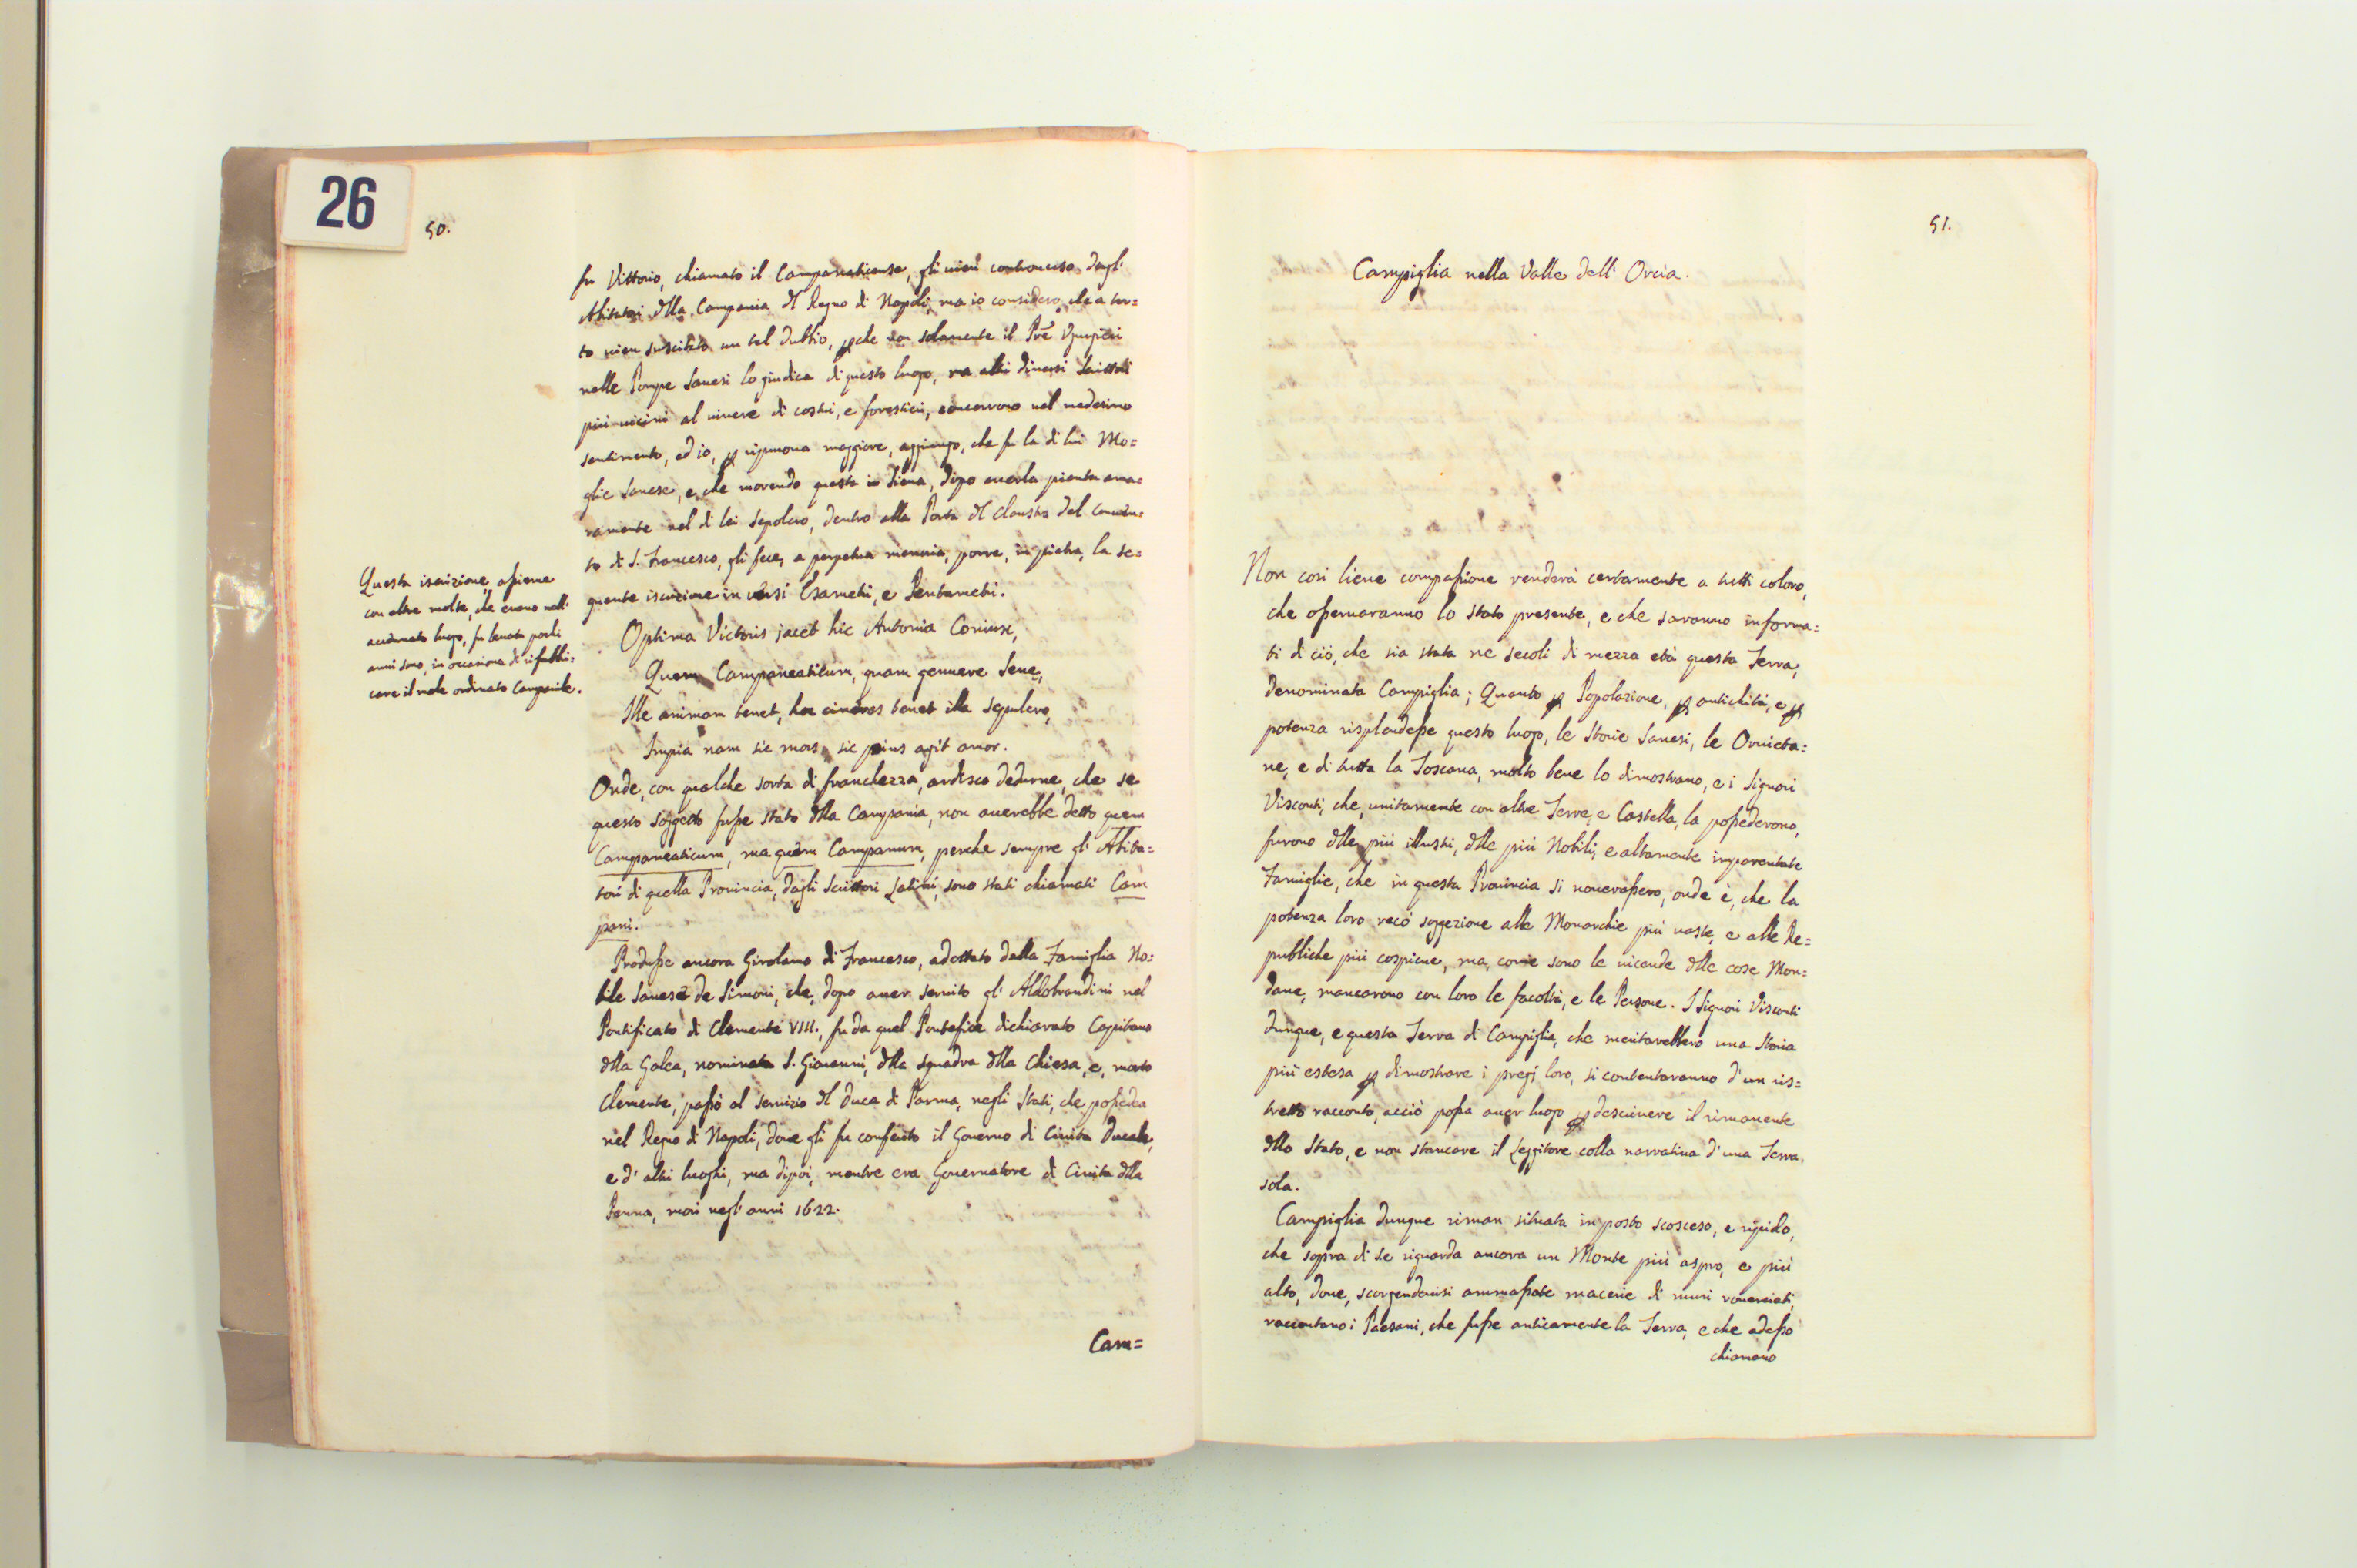 26
50.
fu Vittorio, chiamato il Campanaticense, gli vien controverso dagl'
Abitatori dlla Campania dl Regno di Napoli, ma io considero, che a tor=
to vien suscitato un tal dubbio, che non solamente il Pre Ugurgieri
nelle Pompe Sanesi lo giudica di questo luogo, ma altri diversi Scrittori
più vicini al vivere di costui, e forestieri, concorrono nel medesimo
sentimento, ed io, riprova maggiore, aggiungo, che fu la di lui Mo=
glie Sanese, e, che morendo questa in Siena, dopo averla pianta ama=
ramente nel di lei sepolcro, dentro alla Porta dl Claustro del Conven=
to di S. Francesco, gli fece, a perpetua memoria, porre, in pietra, la se=
guente iscrizione in versi Esametri, e Pentametri.
Optima Victoris jacet hic Antonia Coniunx,
Quem Campaneaticum, quam genuere Sene,
Ille animam tenet, hos cineres tenet illa sepulcro,
Impia nam sic mors, sic pius agit amor.
Onde, con qualche sorta di franchezza, ardisco dedurne, che se
questo soggetto fusse stato dlla Campania, non averebbe detto quem
Campaneaticum, ma quem Campanum, perche sempre gl' Abita=
tori di quella Provincia, dagli Scrittori Latini, sono stati chiamati Cam
pani.
Produsse ancora Girolamo di Francesco, adottato dalla Famiglia No=
bile Sanese de Simoni, che, dopo aver servito gl' Aldobrandini nel
Pontificato di Clemente VIII., fu da quel Pontefice dichiarato Capitano
dlla Galea, nominata S. Giovanni, dlla squadra dlla Chiesa, e, morto
Clemente, passò al servizio dl Duca di Parma, negli Stati, che possedea
nel Regno di Napoli, dove gli fu conferito il Governo di Civita Ducale,
e d' altri luoghi, ma dipoi, mentre era Governatore di Civita dlla
Penna, morì negl' anni 1622.
Questa iscrizione, assieme
con altre molte, che erano nell'
accennato luogo, fu levata pochi
anni sono, in occasione di rifabbri=
care il male ordinato Campanile.
Cam=
51.
Campiglia nella Valle dell' Orcia.
Non così lieve compassione renderà certamente a tutti coloro,
che osservaranno lo stato presente, e che saranno informa=
ti di ciò, che sia stata ne secoli di mezza età questa Terra,
denominata Campiglia; Quanto Popolazione, antichità, e
potenza risplendesse questo luogo, le Storie Sanesi, le Orvieta=
ne, e di tutta la Toscana, molto bene lo dimostrano, e i Signori
Visconti, che, unitamente con altre Terre, e Castella, la possederono,
furono dlle più illustri, dlle più Nobili, e altamente imparentate
Famiglie, che in questa Provincia si noverassero, onde è, che la
potenza loro recò soggezione alle Monarchie più vaste, e alle Re=
pubbliche più cospicue, ma, come sono le vicende dlle cose Mon=
dane, mancarono con loro le facoltà, e le Persone. I Signori Visconti
dunque, e questa Terra di Campiglia, che meritarebbero una Storia
più estesa dimostrare i pregj loro, si contentaranno d'un ris=
tretto racconto, acciò possa aver luogo descrivere il rimanente
dllo Stato, e non stancare il Leggitore colla narrativa d'una Terra
sola.
Campiglia dunque riman situata in posto scosceso, e ripido,
che sopra di se riguarda ancora un Monte più aspro, e più
alto, dove, scorgendovisi ammassate macerie di muri rovesciati,
raccontano i Paesani, che fusse anticamente la Terra, e che adesso
chiamano